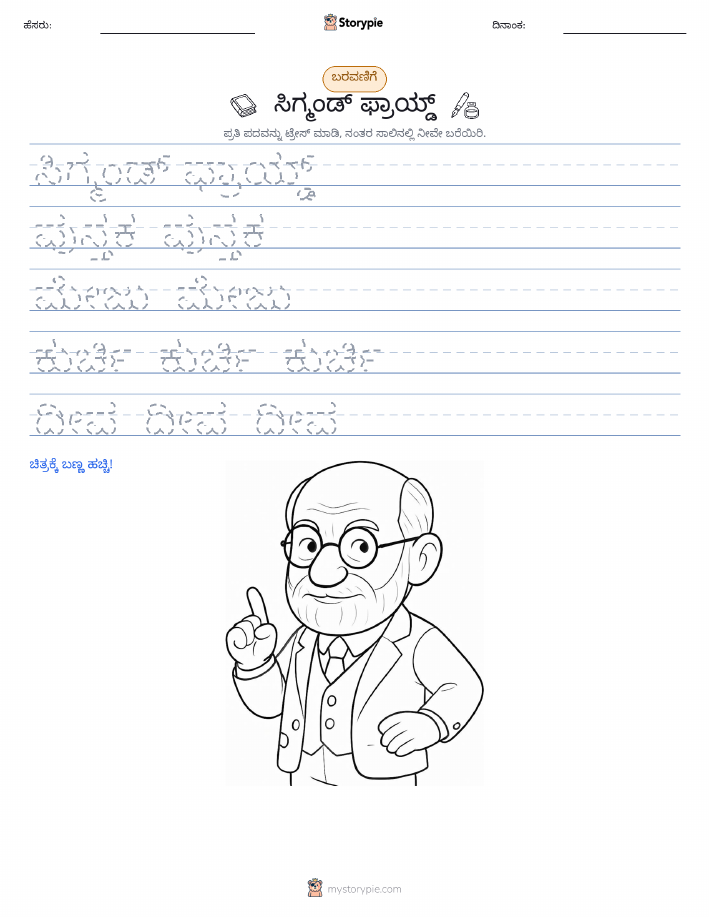 ಹೆಸರು: Storypie ದಿನಾಂಕ:
ಬರವಣಿಗೆ
ಸಿಗ್ಮಂಡ್ ಫ್ರಾಯ್ಡ್
ಪ್ರತಿ ಪದವನ್ನು ಟ್ರೇಸ್ ಮಾಡಿ, ನಂತರ ಸಾಲಿನಲ್ಲಿ ನೀವೇ ಬರೆಯಿರಿ.
ಸಿಗ್ಮಂಡ್ ಫ್ರಾಯ್ಡ್
ಪುಸ್ತಕ ಪುಸ್ತಕ
ಮೇಜು ಮೇಜು
ಕುರ್ಚಿ ಕುರ್ಚಿ ಕುರ್ಚಿ
ದೀಪ ದೀಪ ದೀಪ
ಚಿತ್ರಕ್ಕೆ ಬಣ್ಣ ಹಚ್ಚಿ!
mystorypie.com